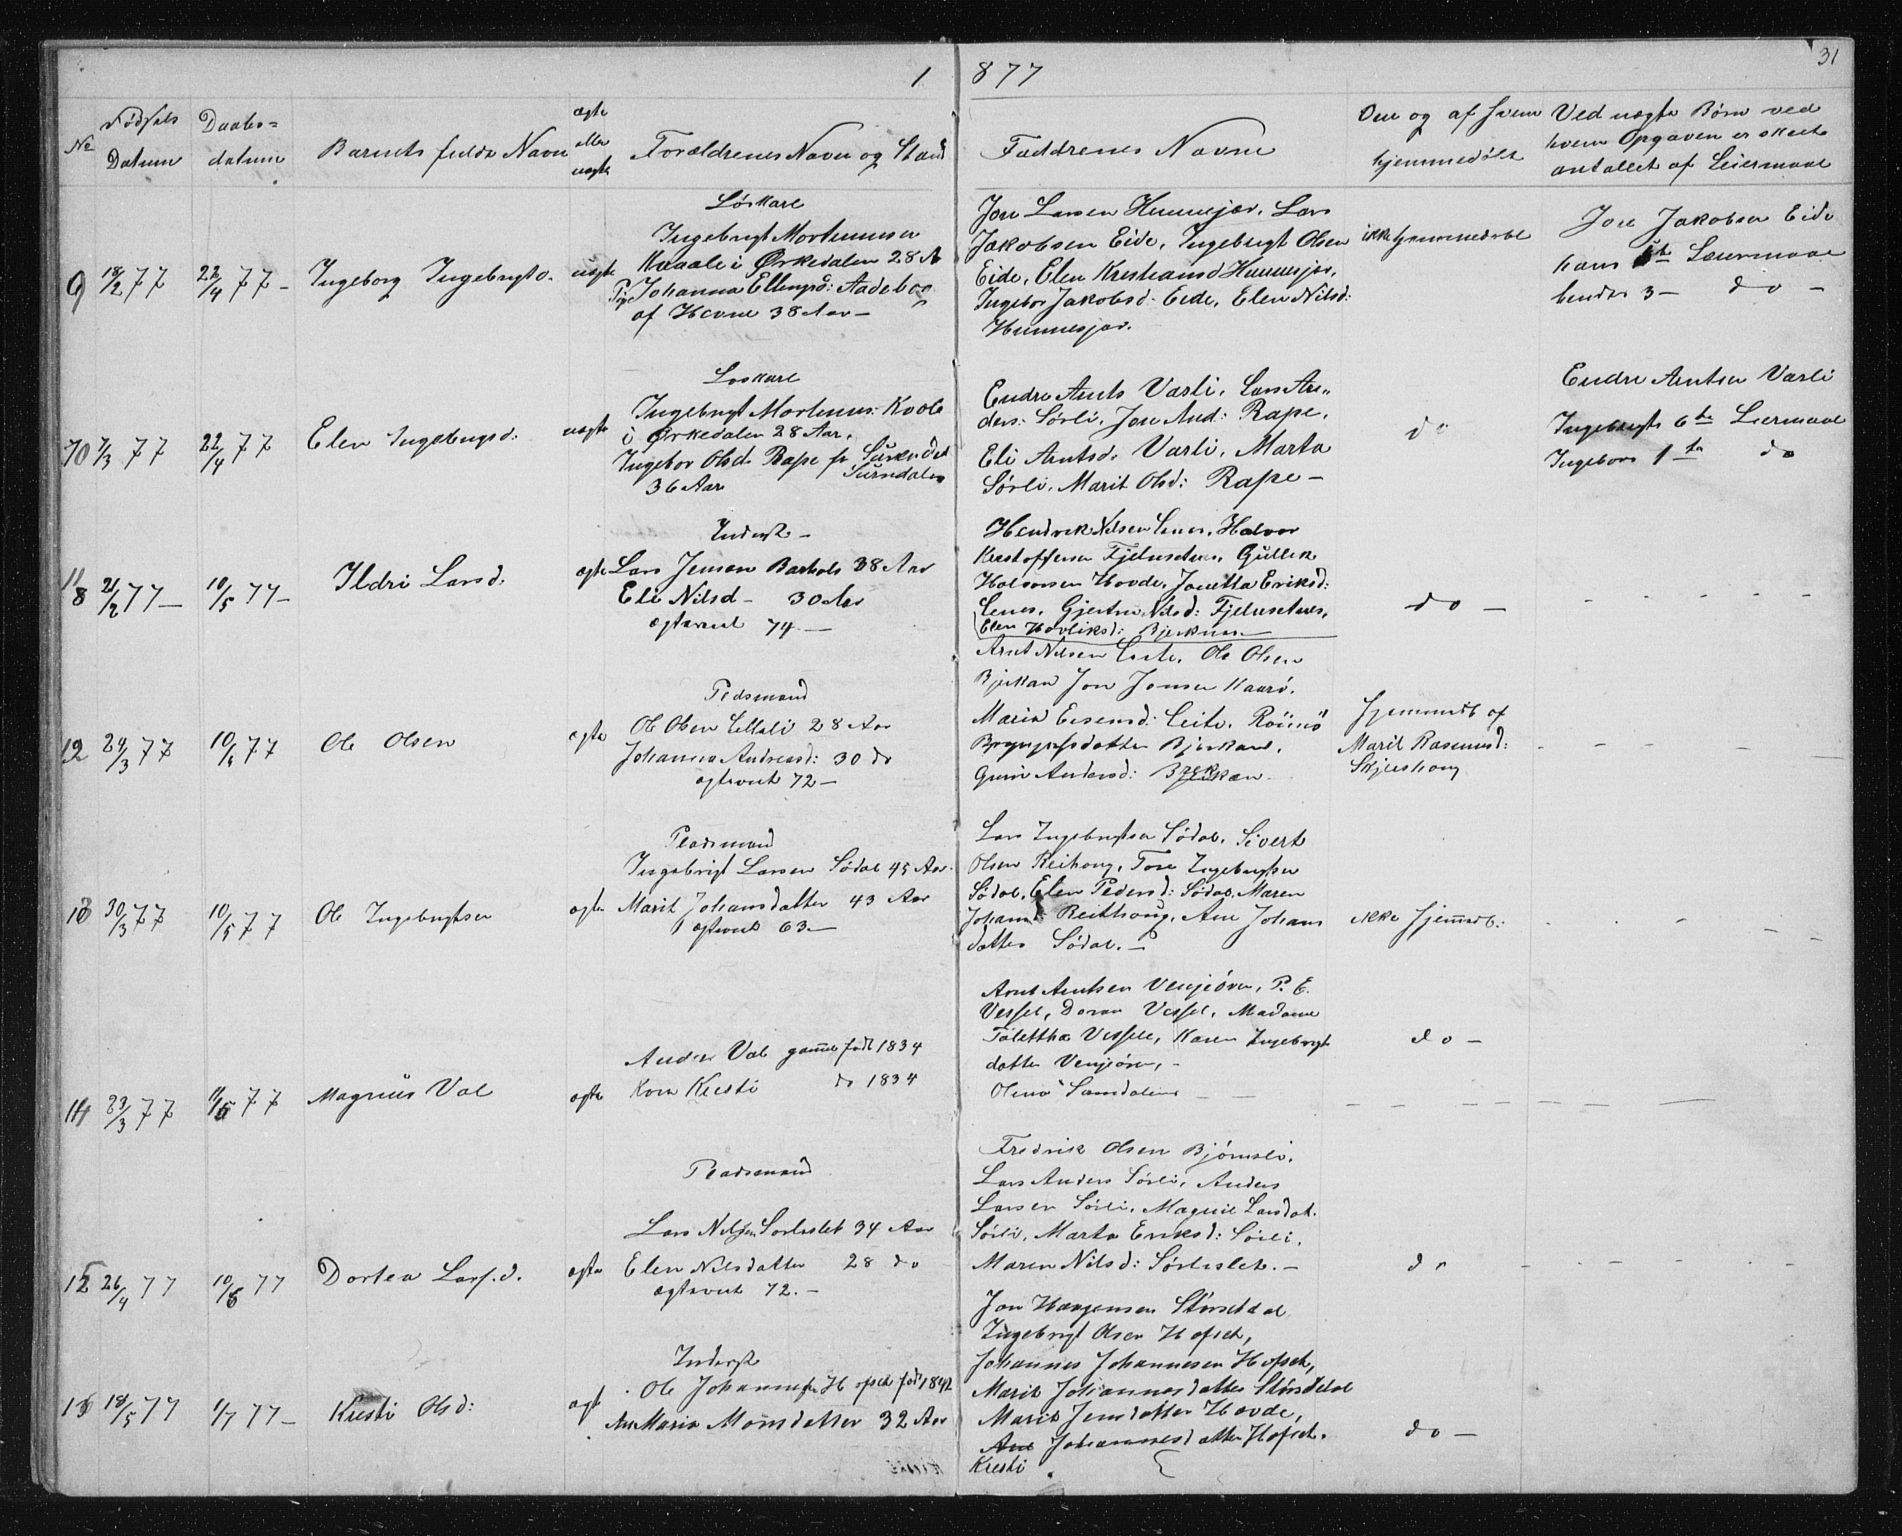 31
1877
No
Fødsels Datum
Daabs= datum
Barnets fulde Navn
ægte eller uægte
Forældrenes Navn og Stand
Faddrenes Navne
Om og af hvem hjemmedøbt
Ved uægte Børn ved
hvem Opgaven er skeet
antallet af Leiermaal
9 18/2 77 22/4 77 - Ingeborg Ingebrigtd. uægte
Løskarl
Ingebrigt Mortensen
Kvaale i Ørkedalen 28 A
Pig Johanna Ellingsd:
af Hevne 38 Aar -
Jon Larsen Hunnesjor, Lars
Jakobsen Eide, Ingebrigt Olsen
Eide, Elen Kristiansd Hunnesjor,
Ingebor Jakobsd: Eide, Elen Nilsd:
Hunnesjor.
ikke hjemmedøbt
Jon Jakobsen Eide
hans Leiermaal
hendes 3 - do -
10 7/3 77 22/4 77 Elen Ingebrigtsd: uægte
Løskarl
Ingebrigt Mortens: Kvole
i Ørkedalen 28 Aar,
Ingebor Olsd. Rape fr
Surndalen
36 Aar
Endre Arnts Varli, Lars An=
ders: Sørli, Jon And: Rape,
Eli Arntsd. Varli, Marta
Sørli, Marit Olsd: Rape -
do
Endre Arntsen Varli
Ingebrigts 6te Leiermaal
Ingebors 1ste do
11 21/2 77 - 10/5 77 - Ildri Larsd. ægte
Inderst -
Lars Jensen Barhols 38 Aar
Eli Nilsd - 30 Aar
ægteviet 74 -
Hendrik Nilsen Lenes, Halvor
Kristoffersen Fjelnseter, Gullik
Halvorsen Hovde, Jonetta Eriksd:
Lenes, Gjertru Nilsd: Fjelnseter,
Elen Hovliksd: Bjerknes
do -
12 24/3 77 10/5 77 Ole Olsen ægte
Pladsmand
Ole Olsen Lilleli 28 Aar
Johanna Andreasd: 30 do
ægteviet 72 -
Arnt Nilsen Leite, Ole Olsen
Bjerkan Jon Jonsen Kaarø,
Maria Leite,
Bjerkan,
Guri Andersd: Bjerkan
hjemmedb af
Marit Rasmusd:
13 30/3 77 10/5 77 Ole Ingebrigtsen ægte
Pladsmand
Ingebrigt Larsen Sødal 45 Aar.
Marit Johansdatter 43 Aar
ægteviet 63 -
Lars Ingebrigtsen Sødal, Sivert
Olsen Reihaug, Tore Ingebrigtsen
Sødal, Elen Pedersd: Sødal, Maren
Johans Reithaug, Ane Johans
datter Sødal. -
ikke hjemmedb:
14 23/3 77 77 Magnus Val ægte
Anders Val gaml født 1834
Kona Kristi do 1834
Arnt Arntsen Venjeøren, P. E.
Vessel, Doran Vessel, Madame
Tolettha Vessel, Karen Ingebrigt
datter Venjeøren, -
Olena Samdalen
do -
15 26/4 77 10/6 77 Dortea Lars.d. ægte
Pladsmand
Lars Nilsen Sørlislet 34 Aar
Elen Nilsdatter 28 do
ægteviet 72. -
Fredrik Olsen Bjørnli,
Lars Anders Sørli, Anders
Larsen Sørli, Magnil Larsdat.
Sørli, Marta Eriksd: Sørli,
Maren Nilsd: Sørlislet. -
do
16 18/5 77 1/7 77 - Kristi Olsd: ægt
Inderst
Ole Johannesen Hofset født 1842
Ane Maria Monsdatter 32 Aar
Jon Storsetdal
Ingebrigt Olsen Hofset,
Johannes Johannesen Hofset,
Marit Johannesdatter Storsetdal
Marit Jensdatter Hovde,
Ane Johannesdatter Hofset.
Kristi
do -